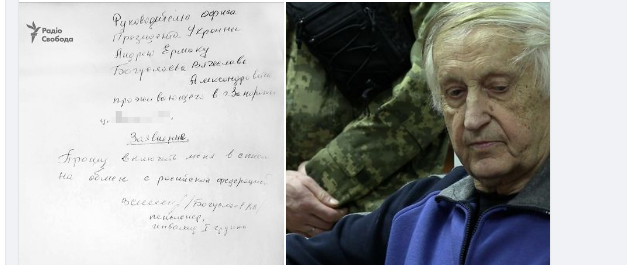 Радіо
Свобода
Руководителю офиса
Президента Украины
Андрею Ермаку
Богуслаева Вячеслава
Александровича
проживающего в г. Запорожье
Заявление
Прошу включить меня в список
на обмен с российской федерацией
пенсионер,
инвалид I группы